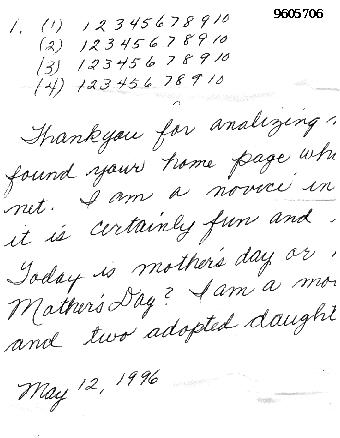 9605706
1. (1) 1 2 3 4 5 6 7 8 9 10
(2) 1 2 3 4 5 6 7 8 9 10
(3) 1 2 3 4 5 6 7 8 9 10
(4) 1 2 3 4 5 6 7 8 9 10
Thankyou for analizing
found your home page
net. I am a novice in
it is certainly fun and
Today is mother's day or
Mother's Day? I am a
and two adopted
May 12, 1996